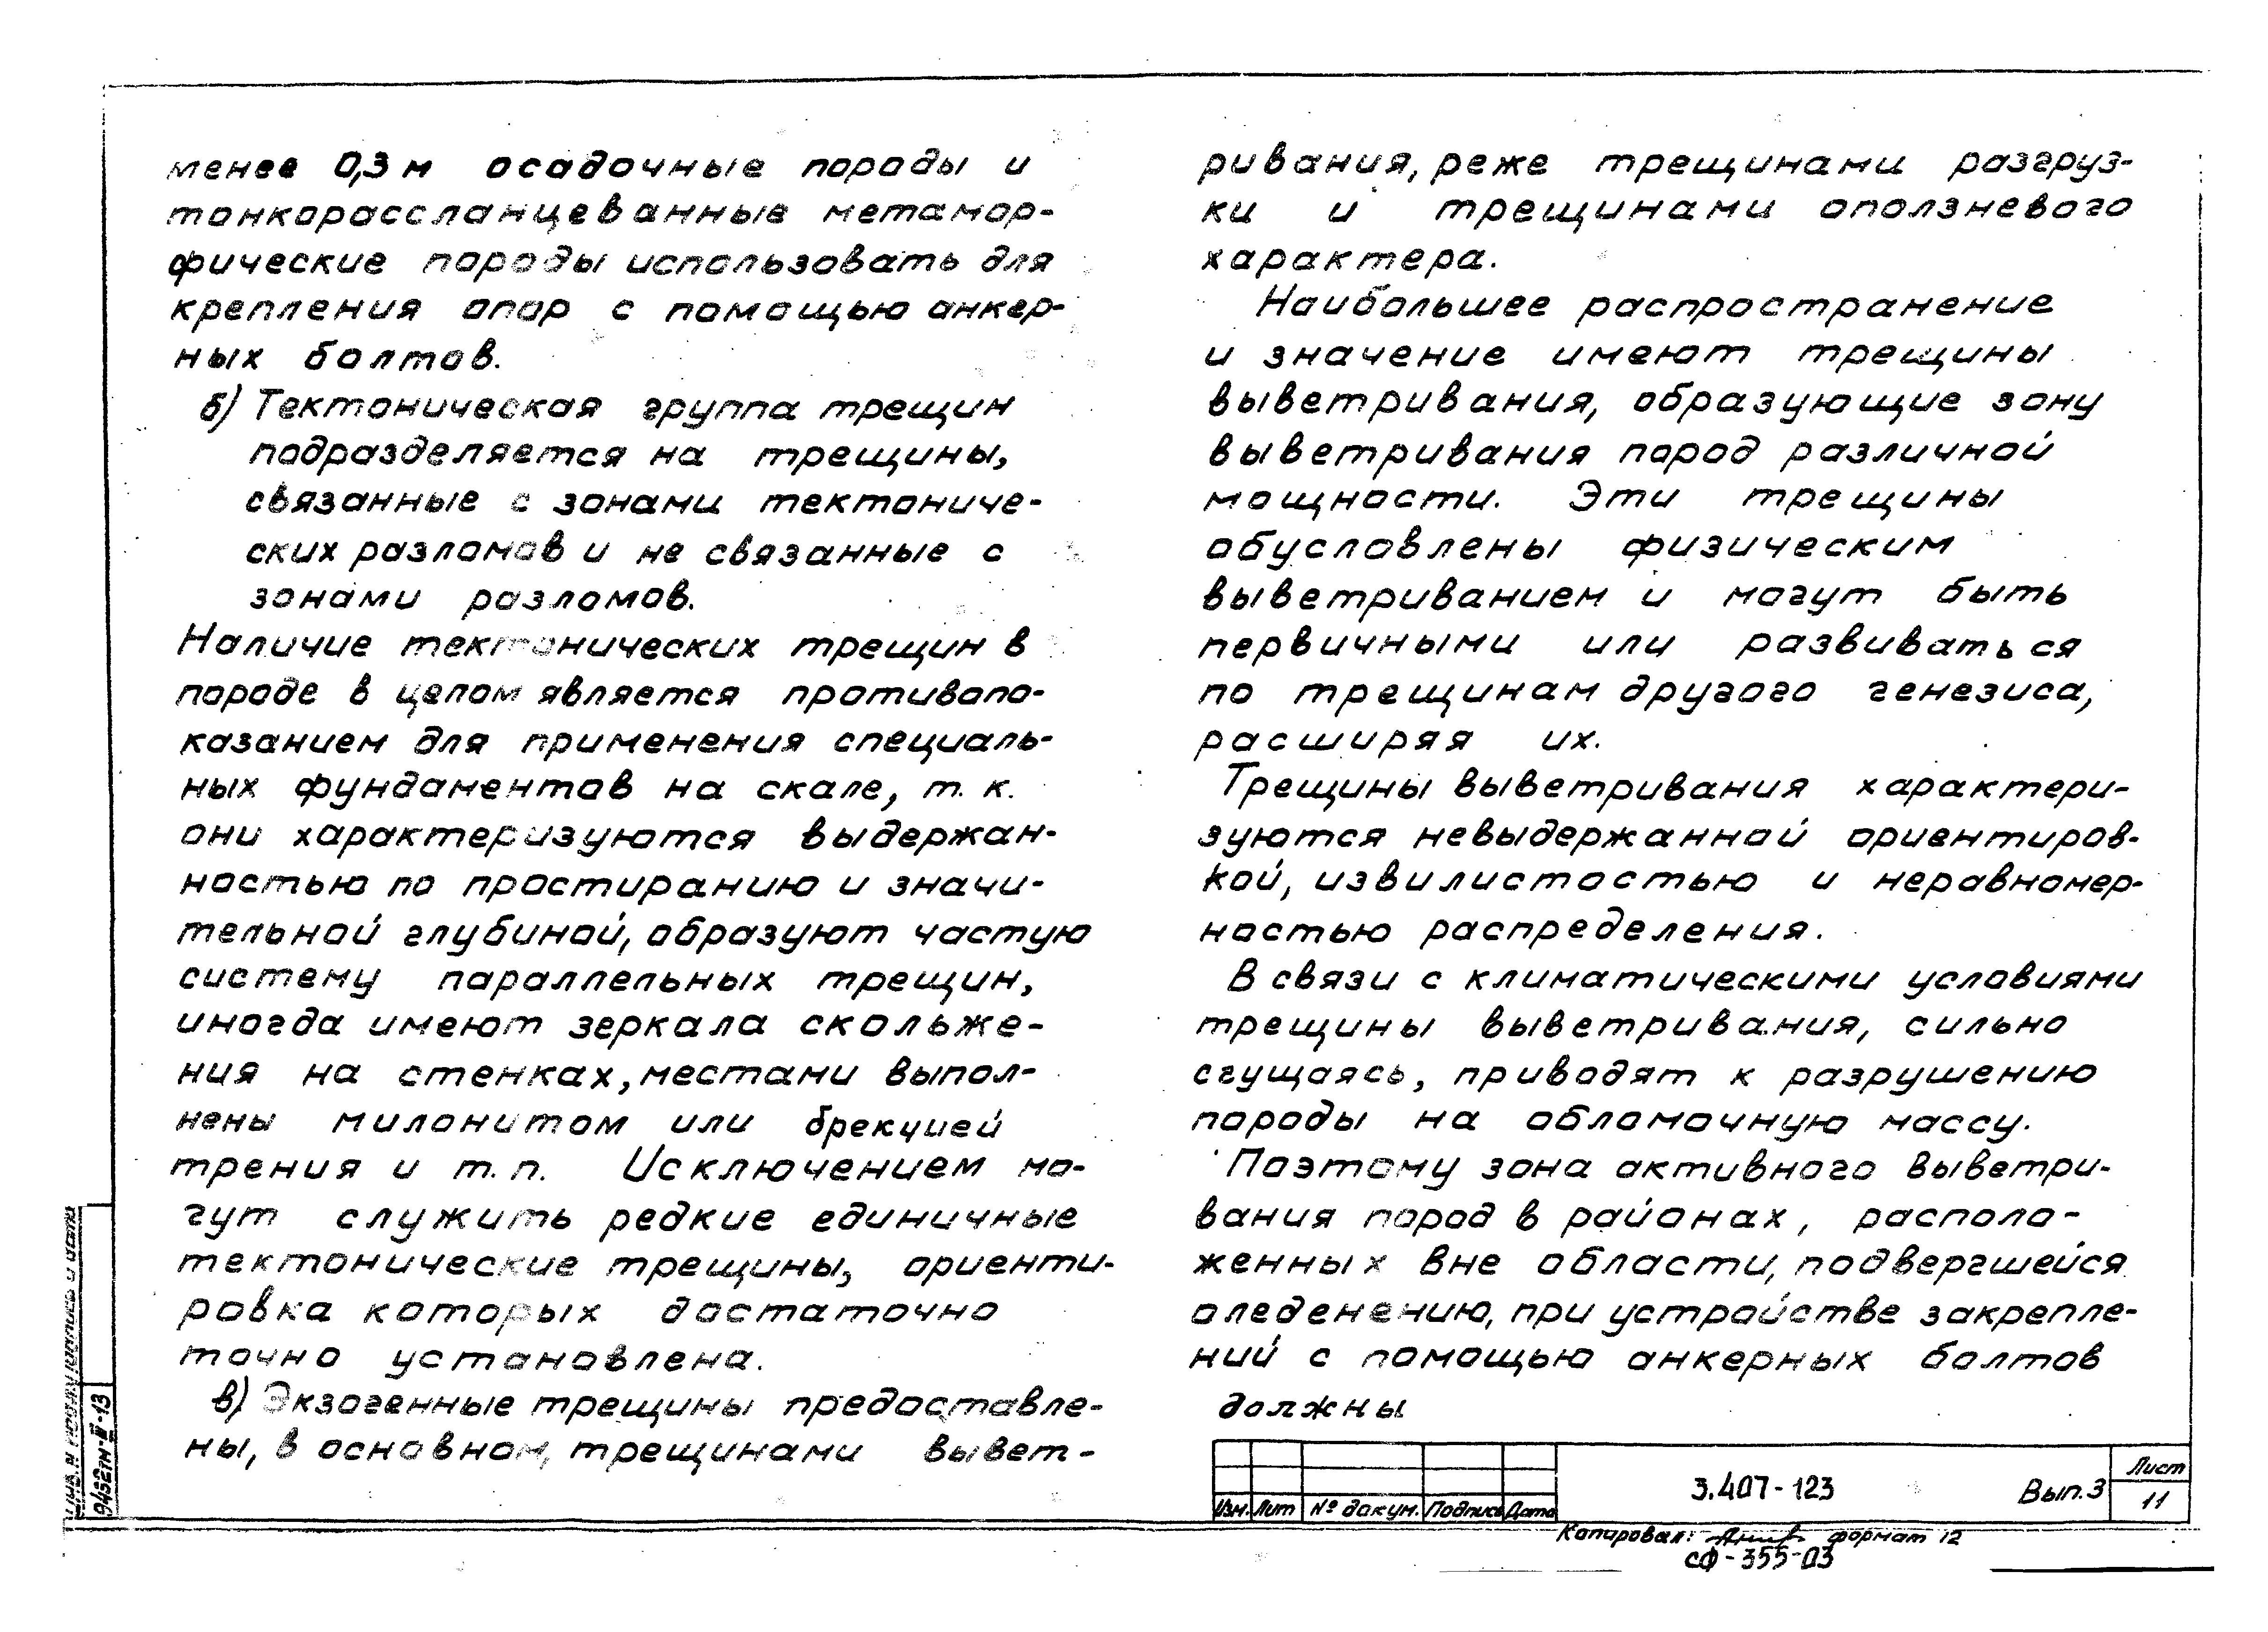 менее 0,3 м осадочные породы и
тонкорассланцеванные метамор-
фические породы использовать для
крепления опор с помощью анкер-
ных болтов.
б) Тектоническая группа трещин
подразделяется на трещины,
связанные с зонами тектониче-
ских разломов и не связанные с
зонами разломов.
Наличие тектонических трещин в
породе в целом является противопо-
казанием для применения специаль-
ных фундаментов на скале, т. к.
они характеризуются выдержан-
ностью по простиранию и значи-
тельной глубиной, образуют частую
систему параллельных трещин,
иногда имеют зеркала скольже-
ния на стенках, местами выпол-
нены милонитом или брекчией
трения и т. п. Исключением мо-
гут служить редкие единичные
тектонические трещины, ориенти-
ровка которых достаточно
точно установлена.
в) Экзогенные трещины предоставле-
ны, в основном, трещинами вывет-
ривания, реже трещинами разгруз-
ки и трещинами оползневого
характера.
Наибольшее распространение
и значение имеют трещины
выветривания, образующие зону
выветривания пород различной
мощности. Эти трещины
обусловлены физическим
выветриванием и могут быть
первичными или развиваться
по трещинам другого генезиса,
расширяя их.
Трещины выветривания характери-
зуются невыдержанной ориентиров-
кой, извилистостью и неравномер-
ностью распределения.
В связи с климатическими условиями
трещины выветривания, сильно
сгущаясь, приводят к разрушению
породы на обломочную массу.
Поэтому зона активного выветри-
вания пород в районах, располо-
женных вне области, подвергшейся
оледенению, при устройстве закрепле-
ний с помощью анкерных болтов
должны
Изм. Лит № докум. Подпись Дата
3.407-123 Вып.3
Лист
11
Копировал: формат 12
СФ-355-03
9432тм-III-13